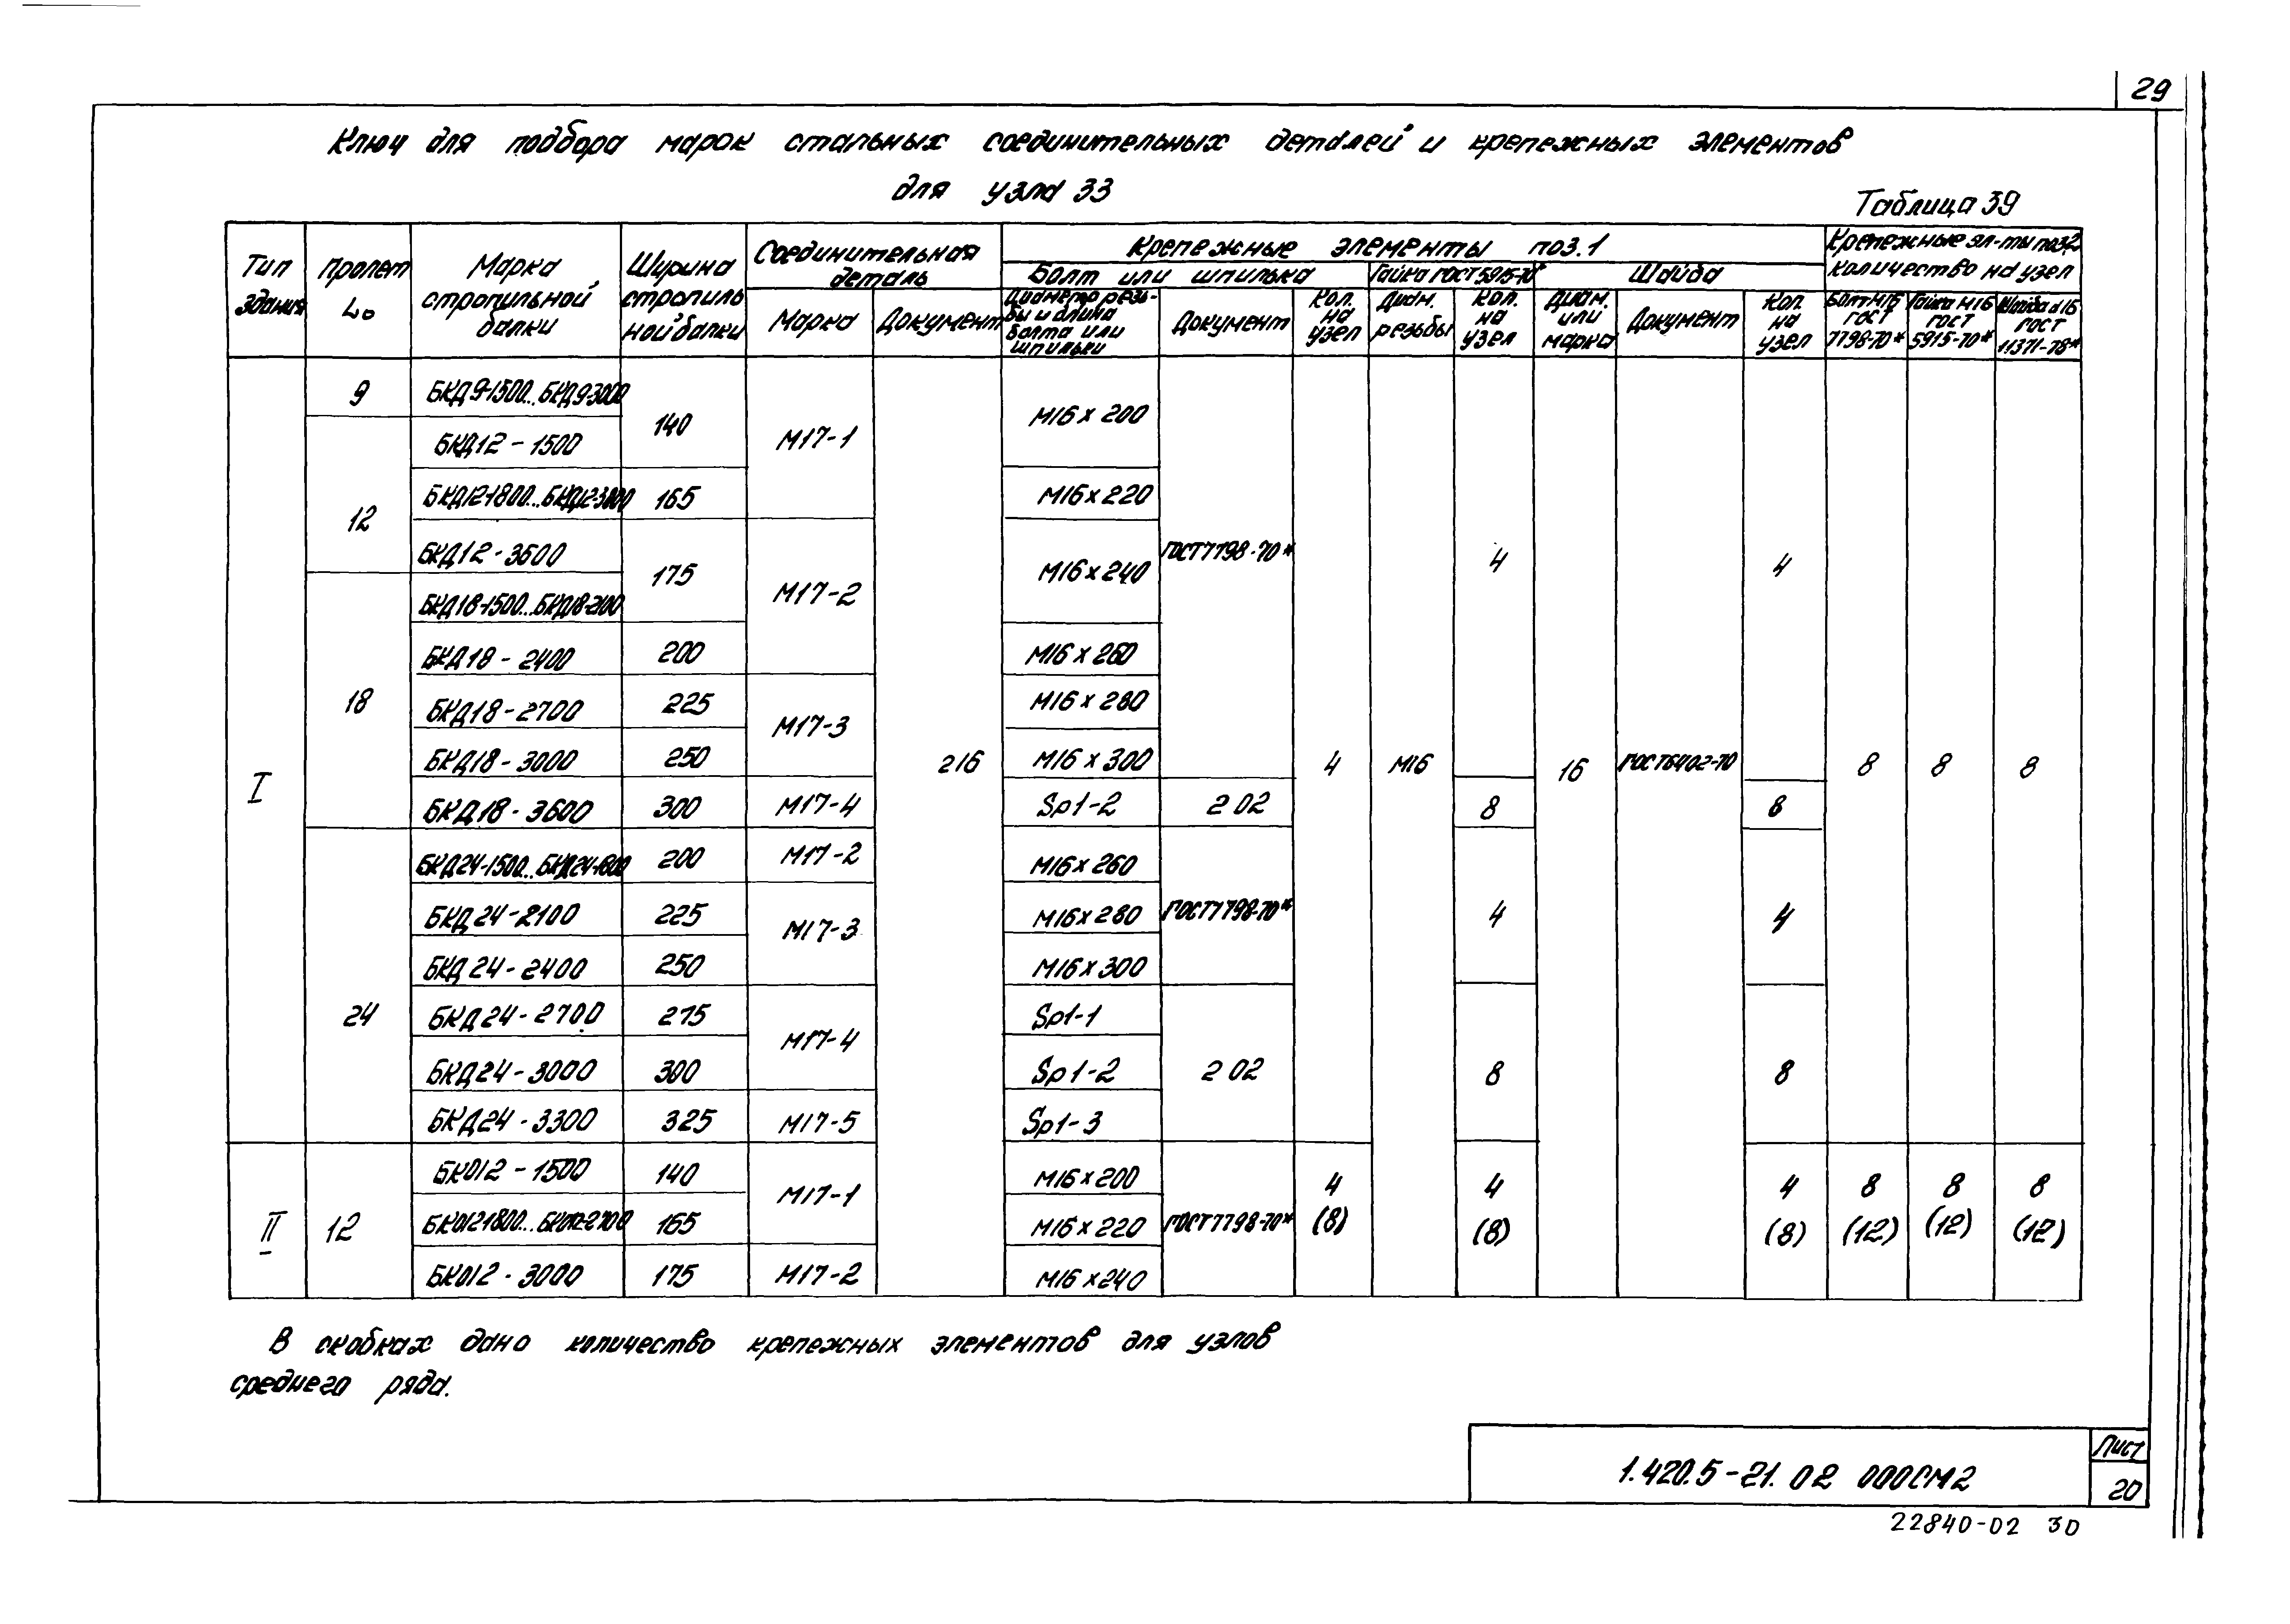 29
Ключ для подбора марок стальных соединительных деталей и крепежных элементов
для узла 33
Таблица 39
Тип здания
Пролет L₀
Марка стропильной балки
Ширина стропиль ной балки
Соединительная деталь
Крепежные элементы поз.1
Крепежные эл-ты поз.2 количество на узел
Болт или шпилька
Гайка ГОСТ 5915-70*
Шайба
Марка
Документ
Диаметр резь-бы и длина болта или шпильки
Документ
Кол. на узел
Диам. резьбы
Кол. на узел
Диам. или марка
Документ
Кол на узел
Болт М16 ГОСТ 7798-70*
Гайка М16 ГОСТ 5915-70*
Шайба d16 ГОСТ 11371-78*
I
9
БКД9-1500...БКД9-3000
140
М17-1
216
М16 х 200
ГОСТ 7798-70*
4
М16
4
16
ГОСТ6402-70
4
8
8
8
12
БКД12-1500
БКД12-1800...БКД12-3000
165
М16 х 220
БКД12-3600
175
М17-2
М16 х 240
18
БКД18-1500...БКД18-2100
БКД18-2400
200
М16 х 260
БКД18-2700
225
М17-3
М16 х 280
БКД18-3000
250
М16 х 300
БКД18-3600
300
М17-4
Sp1-2
2 02
8
8
24
БКД24-1500...БКД24-1800
200
М17-2
М16 х 260
ГОСТ7798-70*
4
4
БКД24-2100
225
М17-3
М16 х 280
БКД24-2400
250
М16 х 300
БКД24-2700
275
М17-4
Sp1-1
2 02
8
8
БКД24-3000
300
Sp1-2
БКД24-3300
325
М17-5
Sp1-3
II
12
БКО12-1500
140
М17-1
М16 х 200
ГОСТ7798-70*
4 (8)
4 (8)
4 (8)
8 (12)
8 (12)
8 (12)
БКО12-1800...БКО12-2700
165
М16 х 220
БКО12-3000
175
М17-2
М16 х 240
В скобках дано количество крепежных элементов для узлов
среднего ряда.
1.420.5-21. 02 000СМ2
Лист
20
22840-02 30